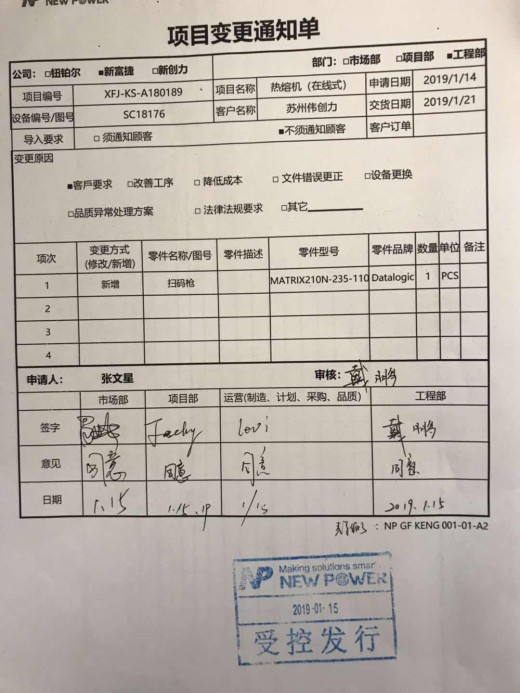 NEW POWER
项目变更通知单
公司：□钮铂尔 ■新富捷 □新创力 部门：□市场部 □项目部 ■工程部
项目编号 XFJ-KS-A180189 项目名称 热熔机（在线式） 申请日期 2019/1/14
设备编号/图号 SC18176 客户名称 苏州伟创力 交货日期 2019/1/21
导入要求 □ 须通知顾客 ■不须通知顾客 客户订单
变更原因
■客戶要求 □改善工序 □ 降低成本 □ 文件错误更正 □设备更换
□品质异常处理方案 □ 法律法规要求 □其它
项次 变更方式 (修改/新增) 零件名称/图号 零件描述 零件型号 零件品牌 数量 单位 备注
1 新增 扫码枪 MATRIX210N-235-110 Datalogic 1 PCS
2
3
4
申请人： 张文星 审核：戴
市场部 项目部 运营(制造、计划、采购、品质) 工程部
签字 Jacky Levi 戴
意见 同意 同意 同意 同意
日期 1.15 1.15.19 1/15 2019.1.15
：NP GF KENG 001-01-A2
NP Making solutions smar
NEW POWER
2019-01-15
受控发行